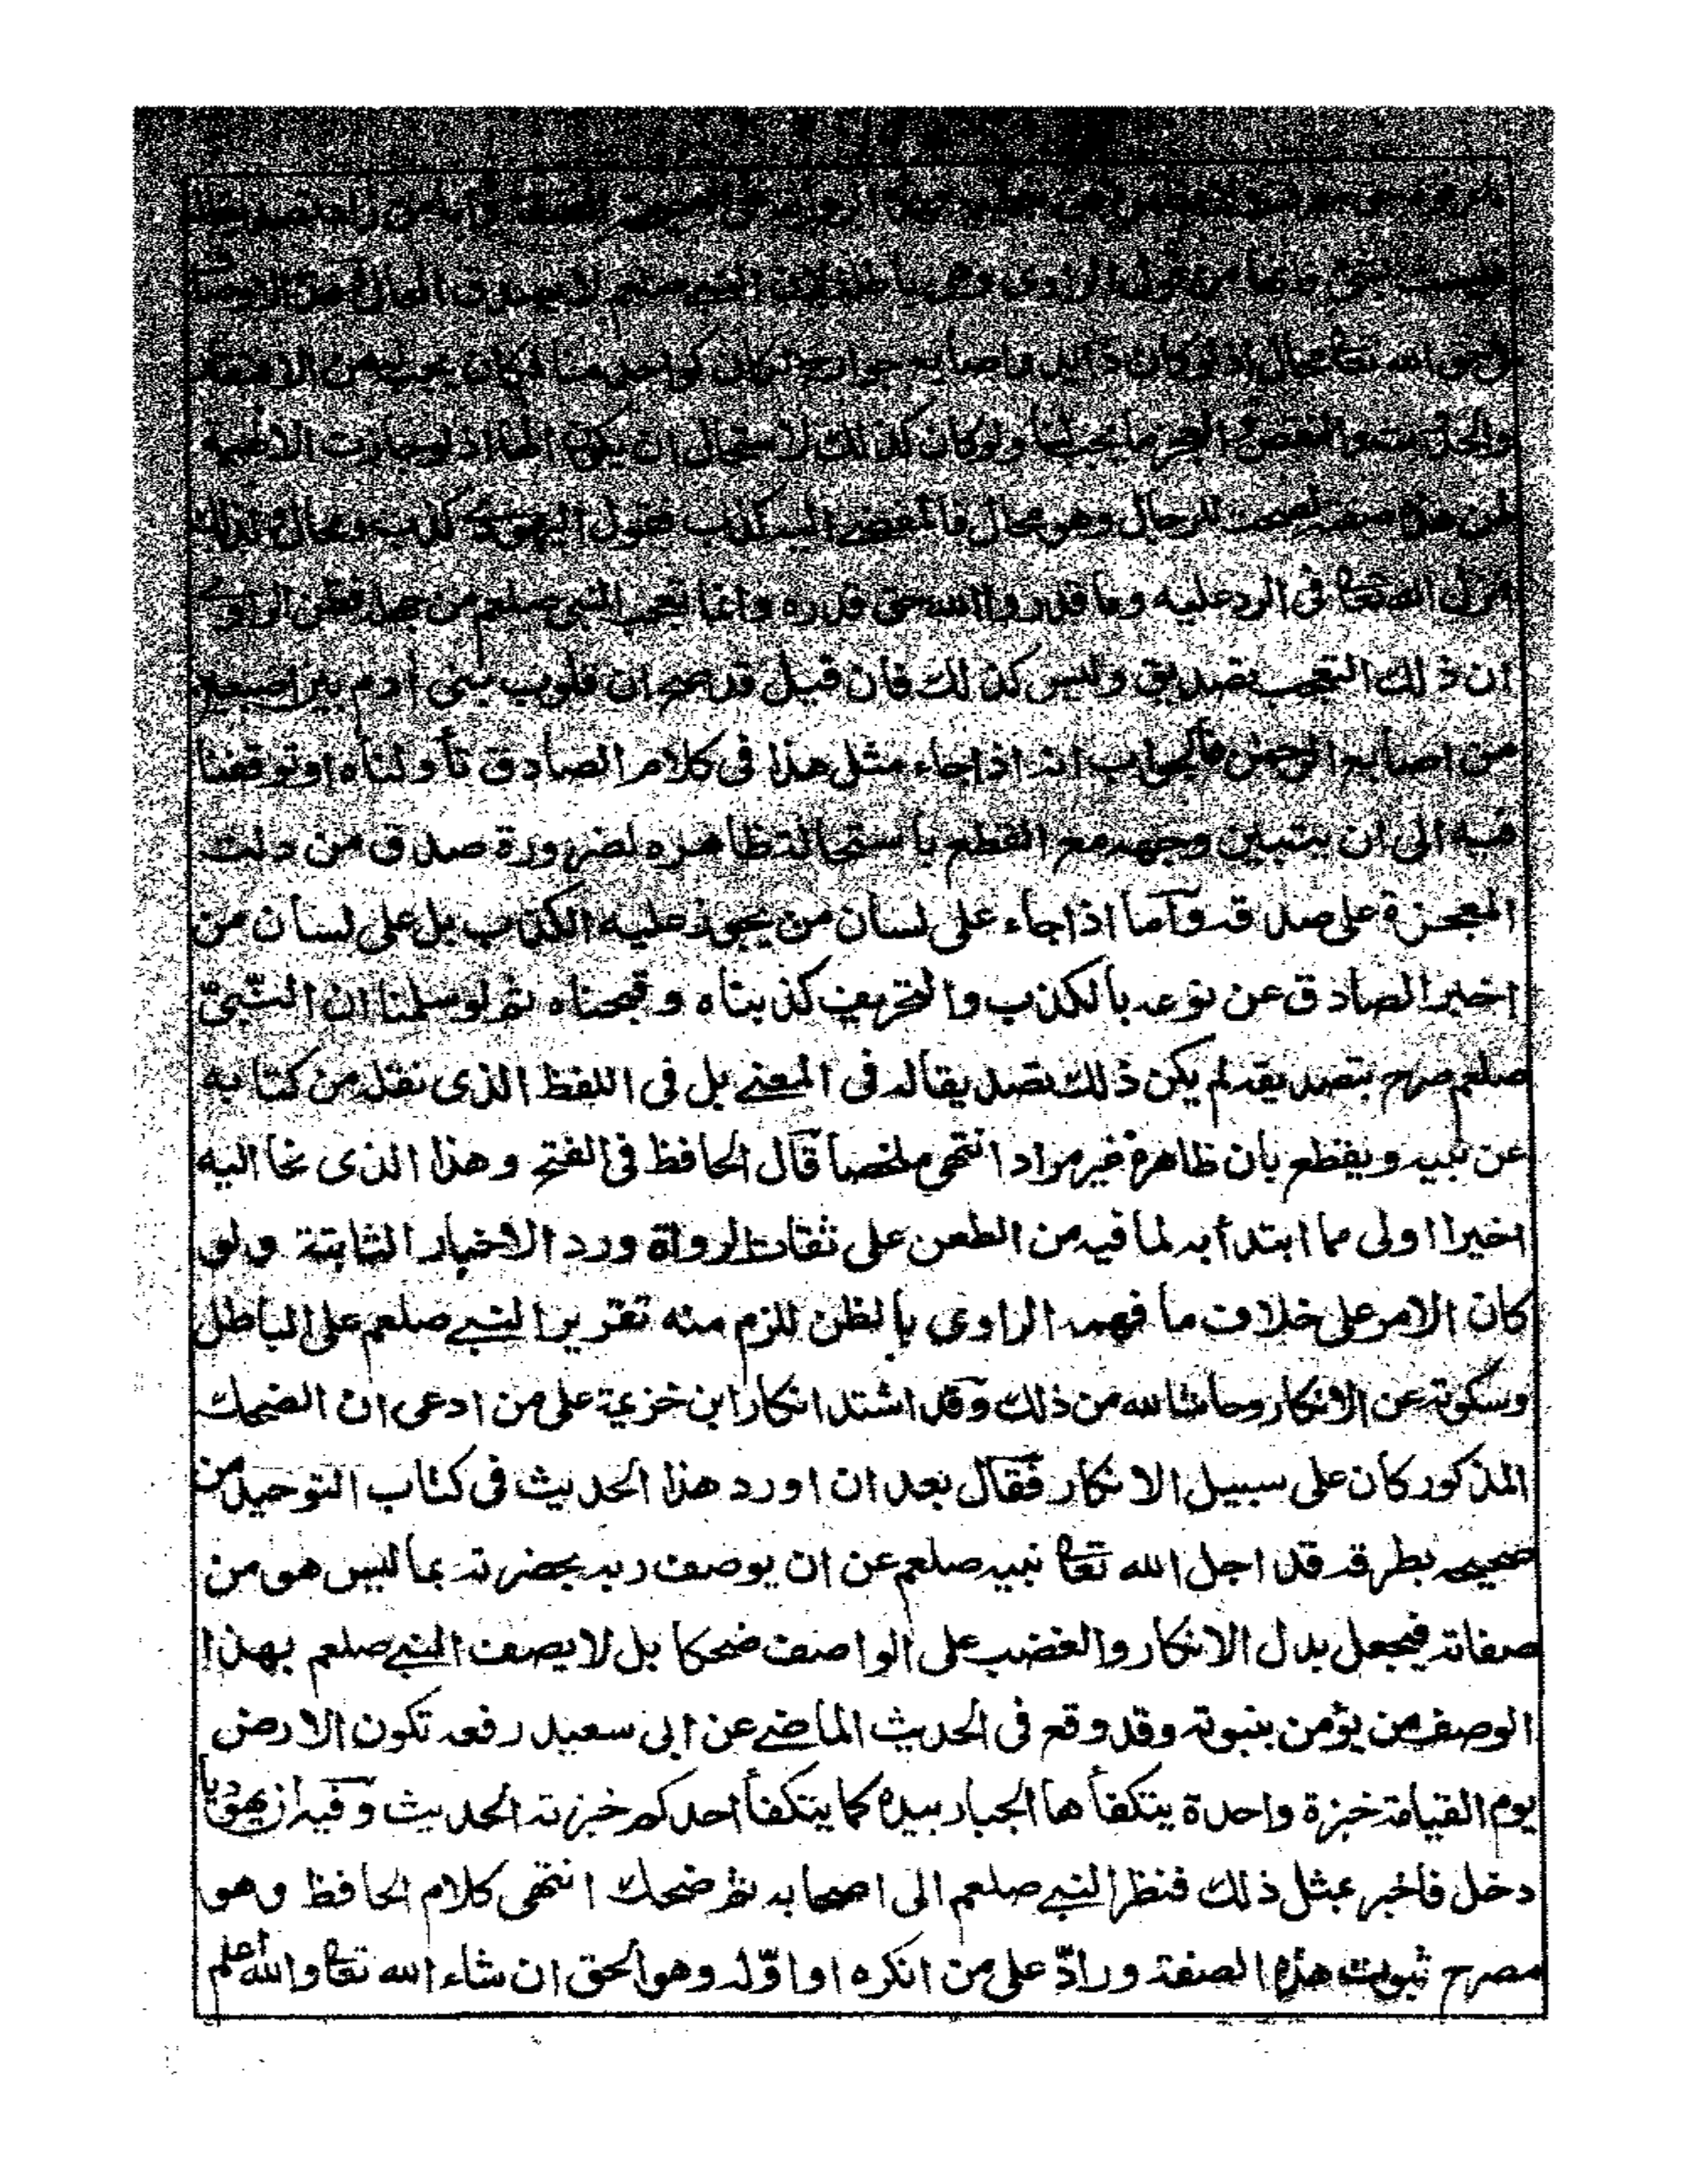 فليست بشئ فانها من قول الراوى وهى باطلة لان النبي صلعم لا يصدق المحال وهذه الاوصاف
فى حق الله تعالى محال اذ لو كان ذا يد واصابع جوارح لكان كواحد منا فكان يجب له من الافتقار
والحدوث والنقص والعجز ما يجب لنا ولو كان كذلك لاستحال ان يكون الها اذ لو جازت الالهية
لمن هذه صفته لصحت للدجال وهو محال فالمفضى اليه كذب فقول اليهودى كذب ومحال ولذلك
انزل الله تعا فى الرد عليه وما قدروا الله حق قدره وانما تعجب النبى صلعم من جهله فظن الراوى
ان ذلك التعجب تصديق وليس كذلك فان قيل قد صح ان قلوب بنى آدم بين اصبعين
من اصابع الرحمن فالجواب انه اذا جاء مثل هذا فى كلام الصادق تأولناه او توقفنا
فيه الى ان يتبين وجهه مع القطع باستحالة ظاهره لضرورة صدق من دلت
المعجزة على صدقه وآما اذا جاء على لسان من يجوز عليه الكذب بل على لسان من
اخبر الصادق عن نوعه بالكذب والتحريف كذبناه وقبحناه ثم لو سلمنا ان النبىّ
صلعم صرح بتصديقه لم يكن ذلك تصديقا له فى المعنے بل فى اللفظ الذى نقله من كتابه
عن نبيه ويقطع بان ظاهره غير مراد انتهى ملخصا قال الحافظ فى الفتح وهذا الذى نحا اليه
اخيرا اولى مما ابتدأ به لما فيه من الطعن على ثقات الرواة ورد الاخبار الثابتة ولو
كان الامر على خلاف ما فهمه الراوى بالظن للزم منه تقرير النبے صلعم على الباطل
وسكوته عن الانكار وحاشا لله من ذلك وقد اشتد انكار ابن خزيمة على من ادعى ان الضحك
المذكور كان على سبيل الانكار فقال بعد ان اورد هذا الحديث فى كتاب التوحيد من
صحيحه بطرقه قد اجل الله تعا نبيه صلعم عن ان يوصف ربه بحضرته بما ليس هو من
صفاته فيجعل بدل الانكار والغضب على الواصف ضحكا بل لا يصف النبے صلعم بهذا
الوصف من يؤمن بنبوته وقد وقع فى الحديث الماضے عن ابى سعيد رفعه تكون الارض
يوم القيامة خبزة واحدة يتكفأها الجبار بيده كما يتكفأ احدكم خبزته الحديث وفيه ان يهوديا
دخل فاخبر بمثل ذلك فنظر النبے صلعم الى اصحابه ثم ضحك انتهى كلام الحافظ وهو
مصرح ثبوت هذه الصفة ورادّ على من انكره او اوّله وهو الحق ان شاء الله تعا والله أعلم